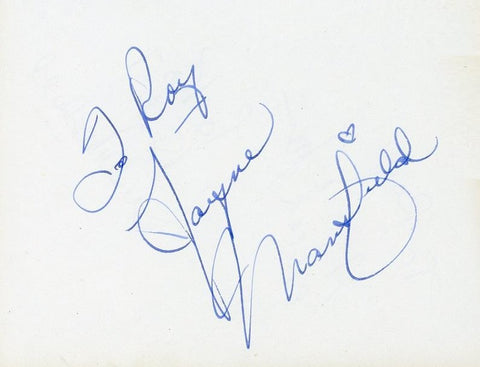 To Roy
Jayne
Mansfield